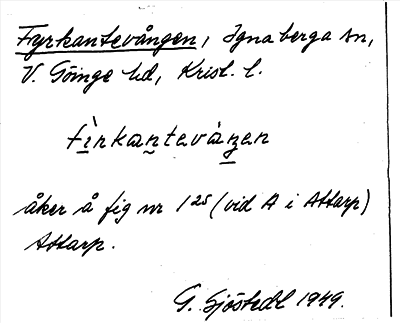 Fyrkantevången, Ignaberga sn,
V. Göinge hd, Krist. l.
fìrkantevàŋen
åker å fig nr 1²⁵ (vid A i Attarp)
Attarp.
G. Sjöstedt 1949.